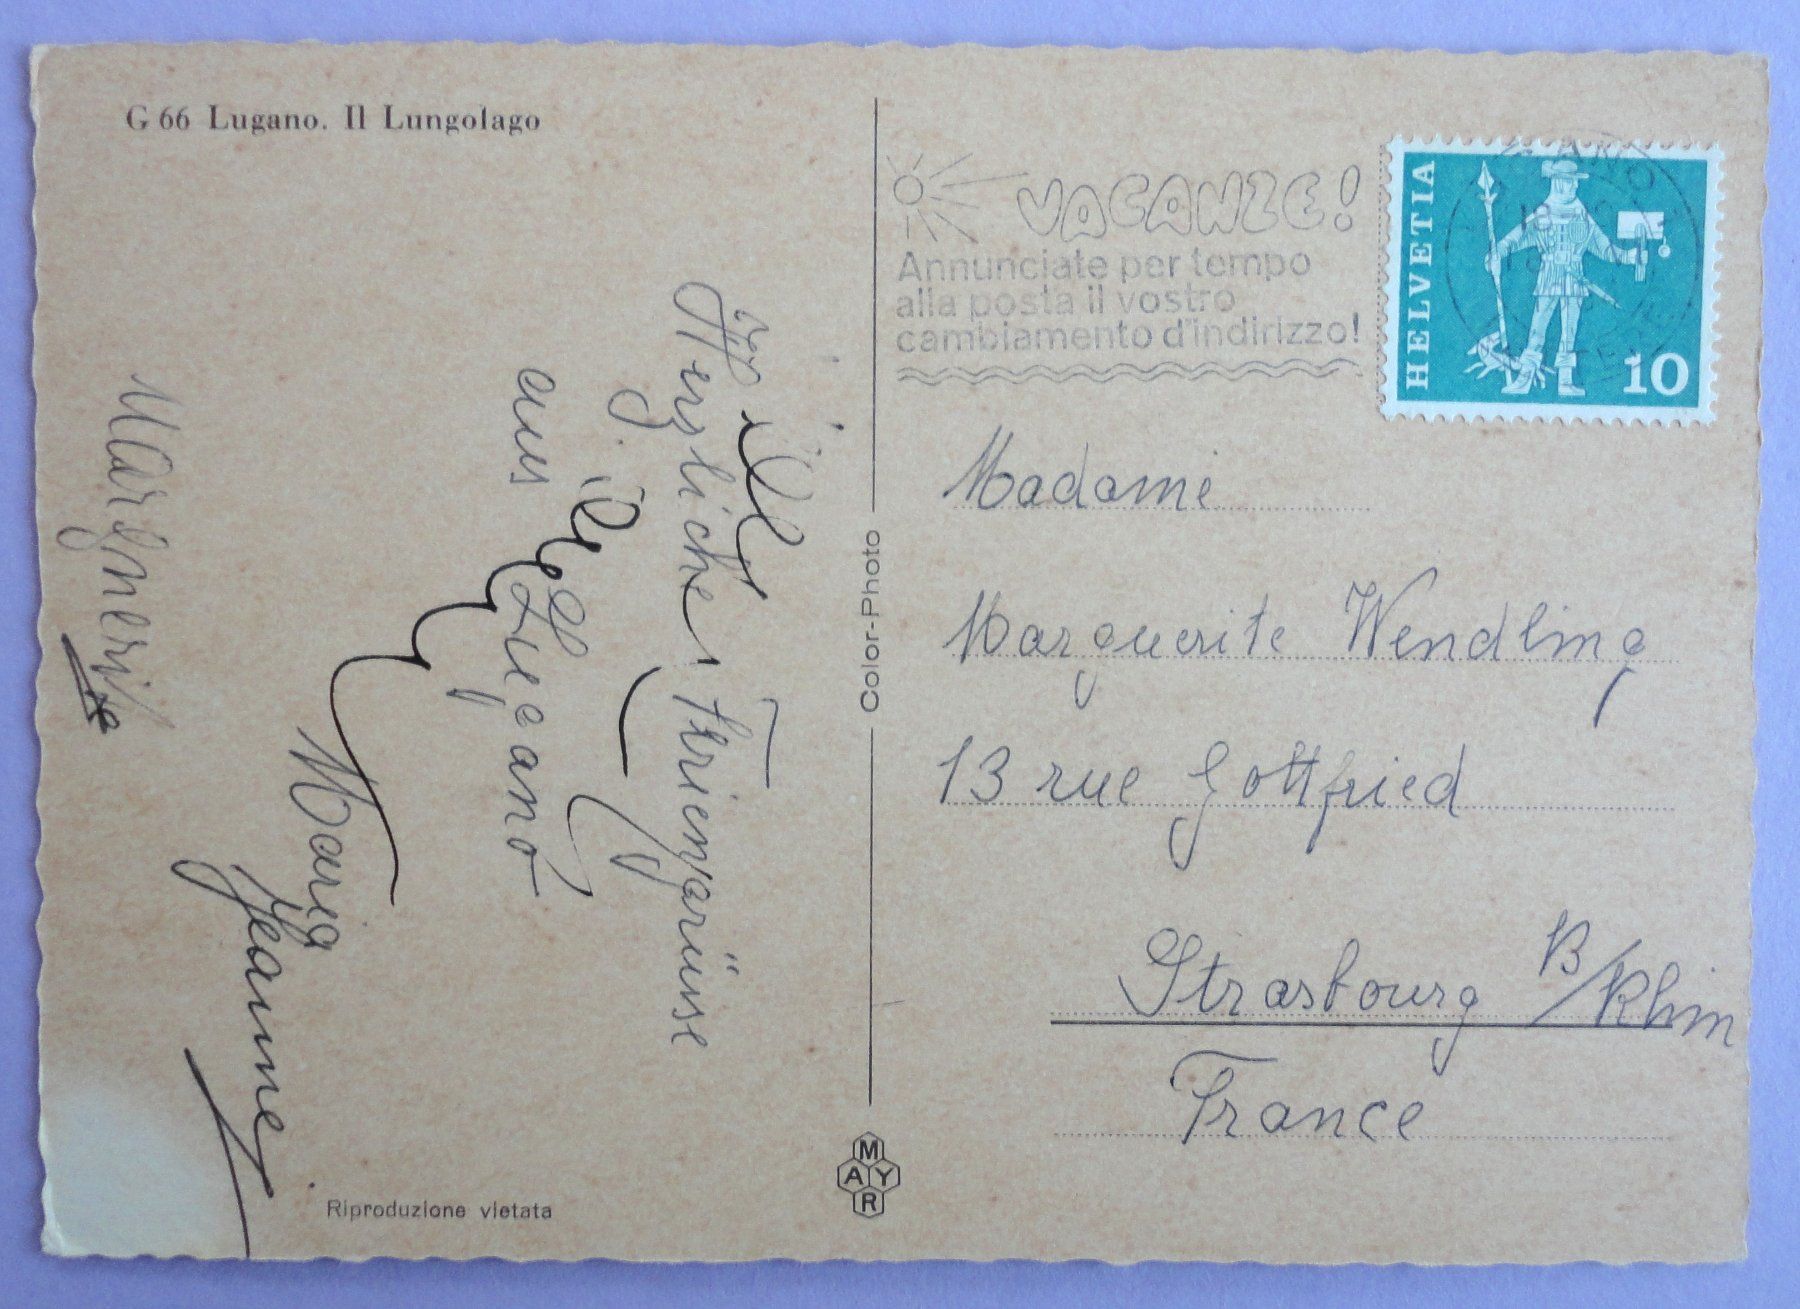 G 66 Lugano. Il Lungolago
Herzliche Feriengrüsse
aus Lugano
Maria
Jeanne
Marguerite
Riproduzione vietata
Color-Photo
MAYR
VACANZE!
Annunciate per tempo
alla posta il vostro
cambiamento d'indirizzo!
HELVETIA
10
Madame
Marguerite Wendling
13 rue Gottfried
Strasbourg B/Rhin
France